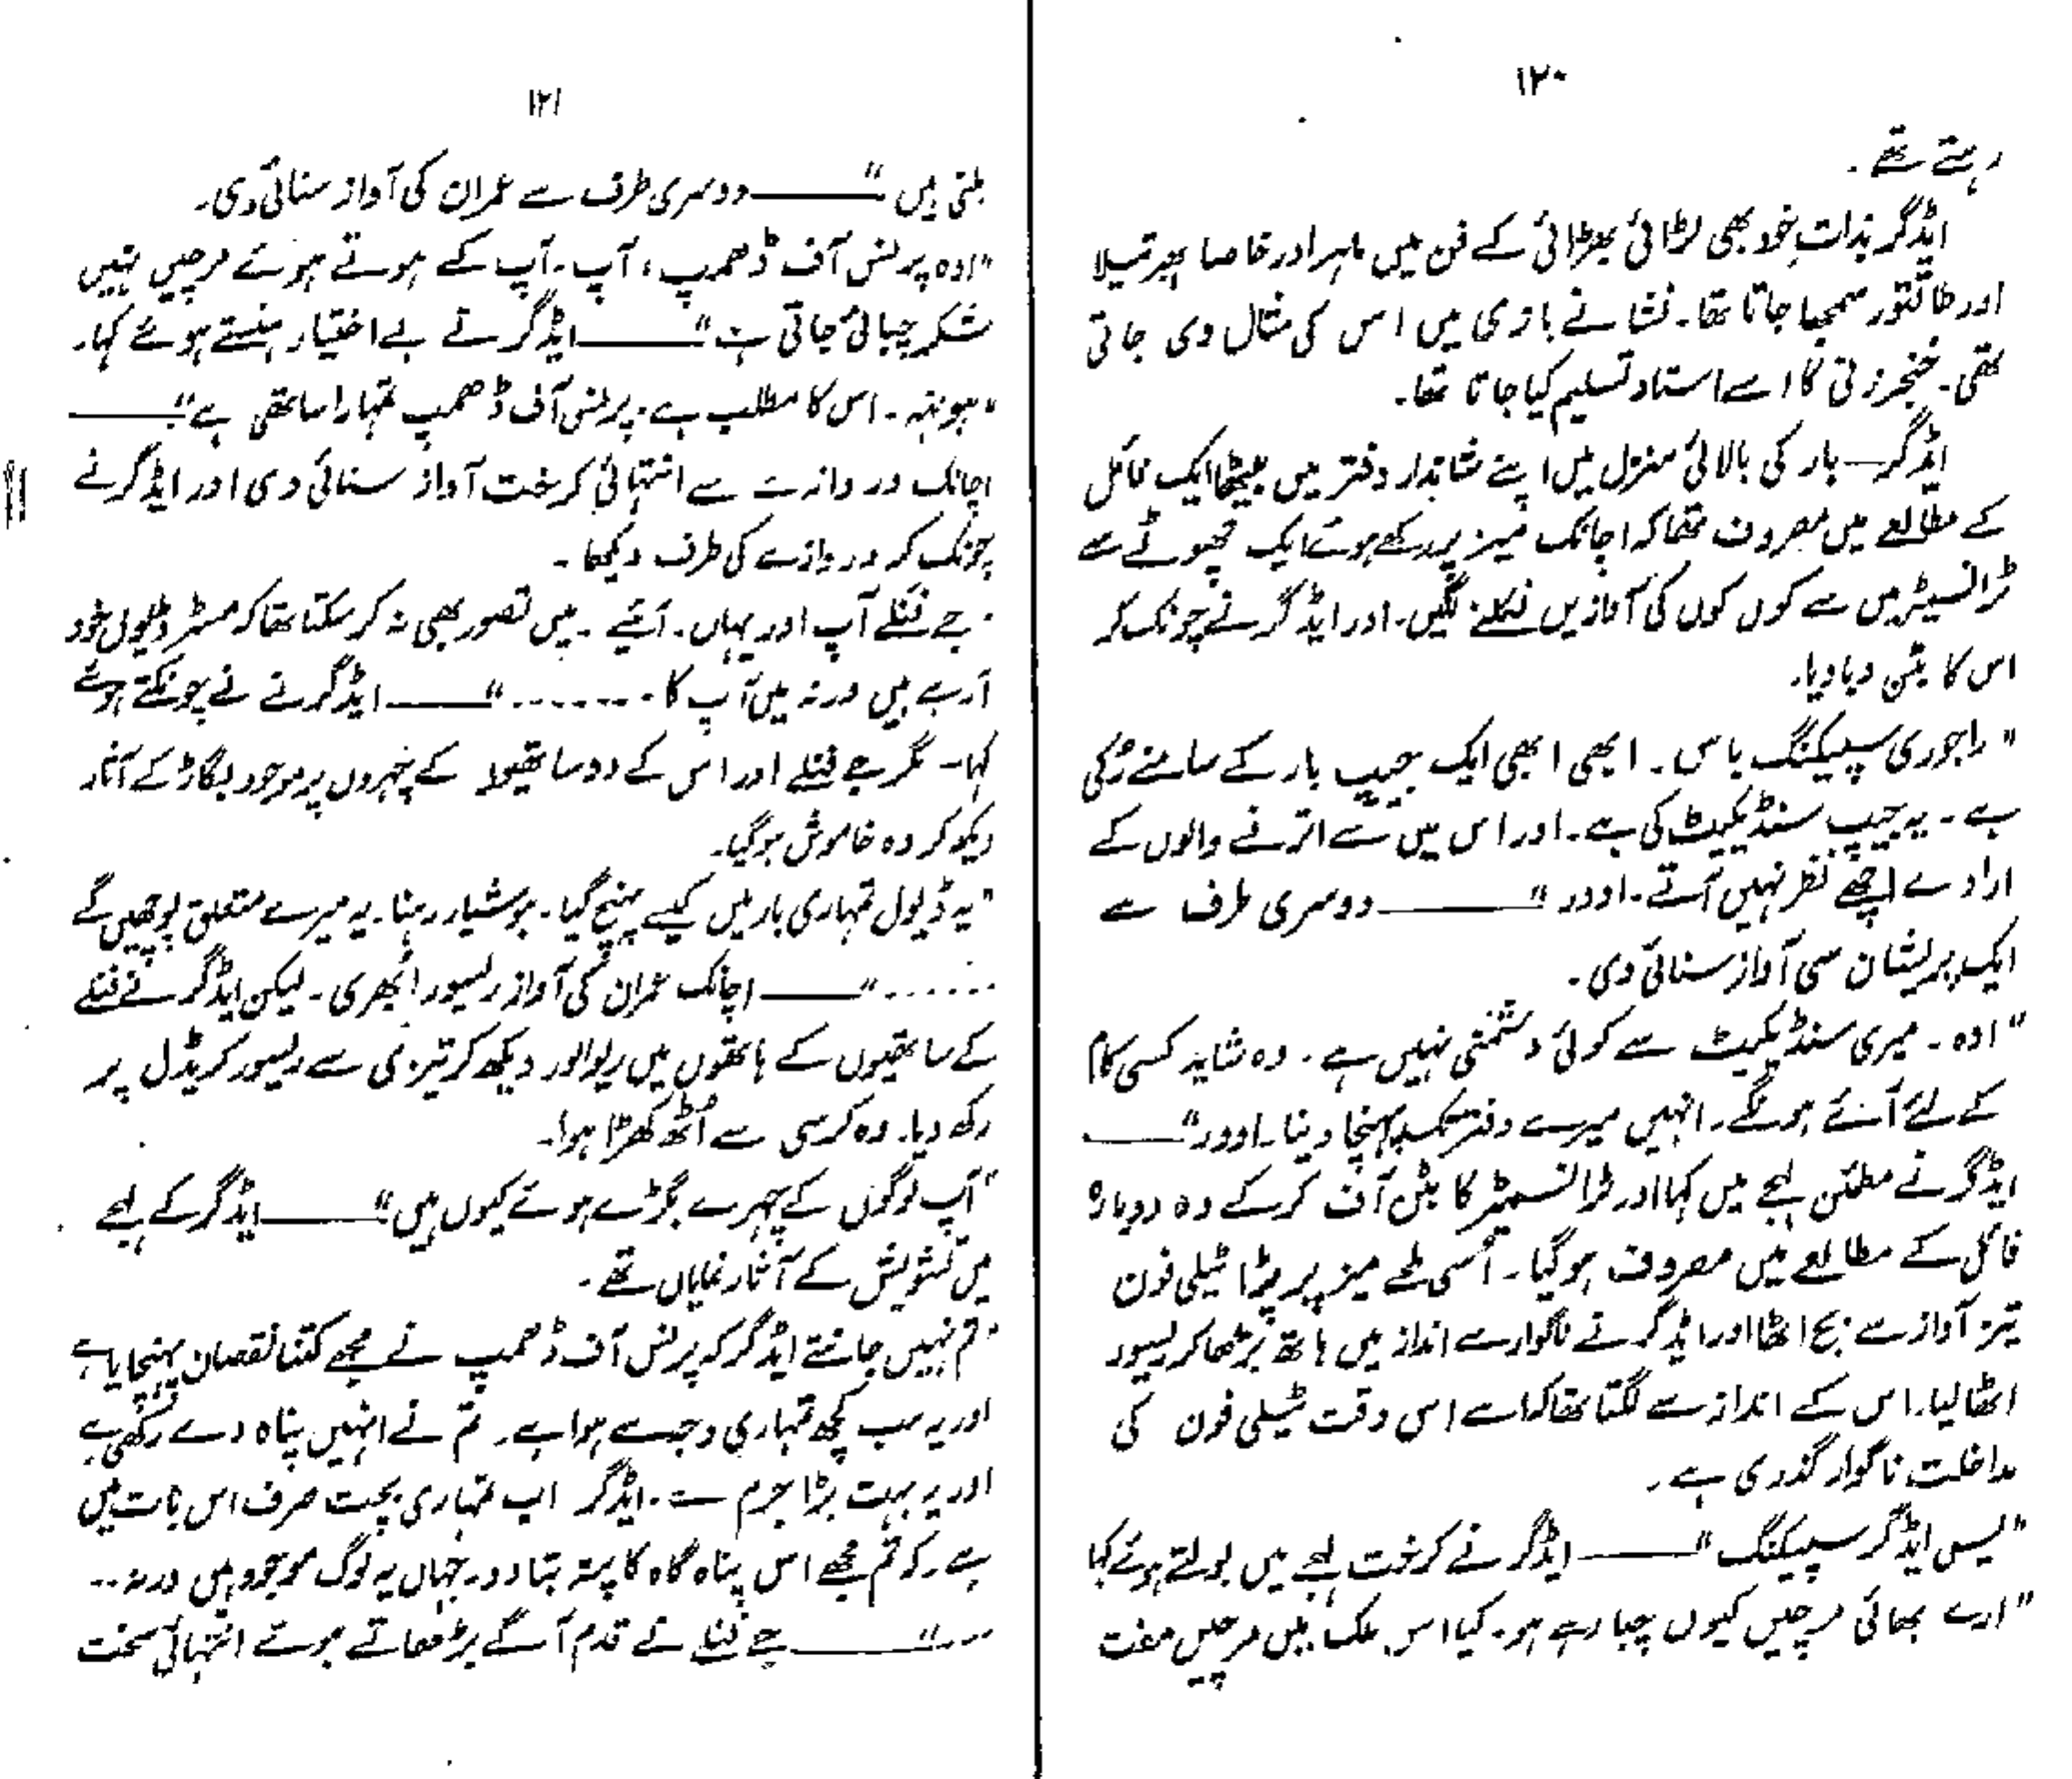 ۱۲۰
رہتے تھے۔
ایڈگر بذاتِ خود بھی لڑائی بھڑائی کے فن میں ماہر اور خاصا پھرتیلا
اور طاقتور سمجھا جاتا تھا۔ نشانے بازی میں اس کی مثال دی جاتی
تھی۔ خنجر زنی کا اسے استاد تسلیم کیا جاتا تھا۔
ایڈگر — بار کی بالائی منزل میں اپنے شاندار دفتر میں بیٹھا ایک فائل
کے مطالعے میں مصروف تھا کہ اچانک میز پر رکھے ہوئے ایک چھوٹے سے
ٹرانسمیٹر میں سے کوں کوں کی آوازیں نکلنے لگیں۔ اور ایڈگر نے چونک کر
اس کا بٹن دبا دیا۔
"راجوری سپیکنگ باس۔ ابھی ابھی ایک جیپ بار کے سامنے رُکی
ہے۔ یہ جیپ سنڈیکیٹ کی ہے۔ اور اس میں سے اترنے والوں کے
ارادے اچھے نظر نہیں آتے۔ اوور" ——— دوسری طرف سے
ایک پریشان سی آواز سنائی دی۔
"اوہ۔ میری سنڈیکیٹ سے کوئی دشمنی نہیں ہے۔ وہ شاید کسی کام
کے لئے آئے ہونگے۔ انہیں میرے دفتر تک پہنچا دینا۔ اوور" ———
ایڈگر نے مطمئن لہجے میں کہا اور ٹرانسمیٹر کا بٹن آف کر کے وہ دوبارہ
فائل کے مطالعے میں مصروف ہو گیا۔ اُسی لمحے میز پر پڑا ٹیلی فون
تیز آواز سے بج اٹھا اور ایڈگر نے ناگوار سے انداز میں ہاتھ بڑھا کر رسیور
اٹھا لیا۔ اس کے انداز سے لگتا تھا کہ اسے اس وقت ٹیلی فون کی
مداخلت ناگوار گذری ہے۔
"یس ایڈگر سپیکنگ" ——— ایڈگر نے کرخت لہجے میں بولتے ہوئے کہا
"ارے بھائی مرچیں کیوں چبا رہے ہو۔ کیا اس ملک میں مرچیں مفت
۱۲۱
ملتی ہیں" ——— دوسری طرف سے عمران کی آواز سنائی دی۔
"اوہ پرنس آف ڈھمپ، آپ۔ آپ کے ہوتے ہوئے مرچیں نہیں
شکر چبائی جاتی ہے" ——— ایڈگر نے بے اختیار ہنستے ہوئے کہا۔
"ہونہہ۔ اس کا مطلب ہے۔ پرنس آف ڈھمپ تمہارا ساتھی ہے" ———
اچانک دروازے سے انتہائی کرخت آواز سنائی دی اور ایڈگر نے
چونک کر دروازے کی طرف دیکھا۔
"جے فنلے آپ اور یہاں۔ آیئے۔ میں تصور بھی نہ کر سکتا تھا کہ مسٹر ڈیول خود
آ رہے ہیں ورنہ میں آپ کا۔۔۔۔۔۔۔" ——— ایڈگر نے نے چونکتے ہوئے
کہا۔ مگر جے فنلے اور اس کے دو ساتھیوں کے چہروں پر موجود بگاڑ کے آثار
دیکھ کر وہ خاموش ہو گیا۔
"یہ ڈیول تمہاری بار میں کیسے پہنچ گیا۔ ہوشیار رہنا۔ یہ میرے متعلق پوچھیں گے
۔۔۔۔۔۔" ——— اچانک عمران کی آواز رسیور اُبھری۔ لیکن ایڈگر نے فنلے
کے ساتھیوں کے ہاتھوں میں ریوالور دیکھ کر تیزی سے رسیور کریڈل پر
رکھ دیا۔ وہ کرسی سے اُٹھ کھڑا ہوا۔
"آپ لوگوں کے چہرے بگڑے ہوئے کیوں ہیں" ——— ایڈگر کے لہجے
میں تشویش کے آثار نمایاں تھے۔
"تم نہیں جانتے ایڈگر کہ پرنس آف ڈھمپ نے مجھے کتنا نقصان پہنچایا ہے
اور یہ سب کچھ تمہاری وجہ سے ہوا ہے۔ تم نے انہیں پناہ دے رکھی ہے
اور یہ بہت بڑا جرم ہے۔ ایڈگر اب تمہاری بچت صرف اس بات میں
ہے۔ کہ تم مجھے اس پناہ گاہ کا پتہ بتا دو۔ جہاں یہ لوگ موجود ہیں ورنہ۔۔
۔۔۔" ——— جے فنلے نے قدم آگے بڑھاتے ہوئے انتہائی سخت